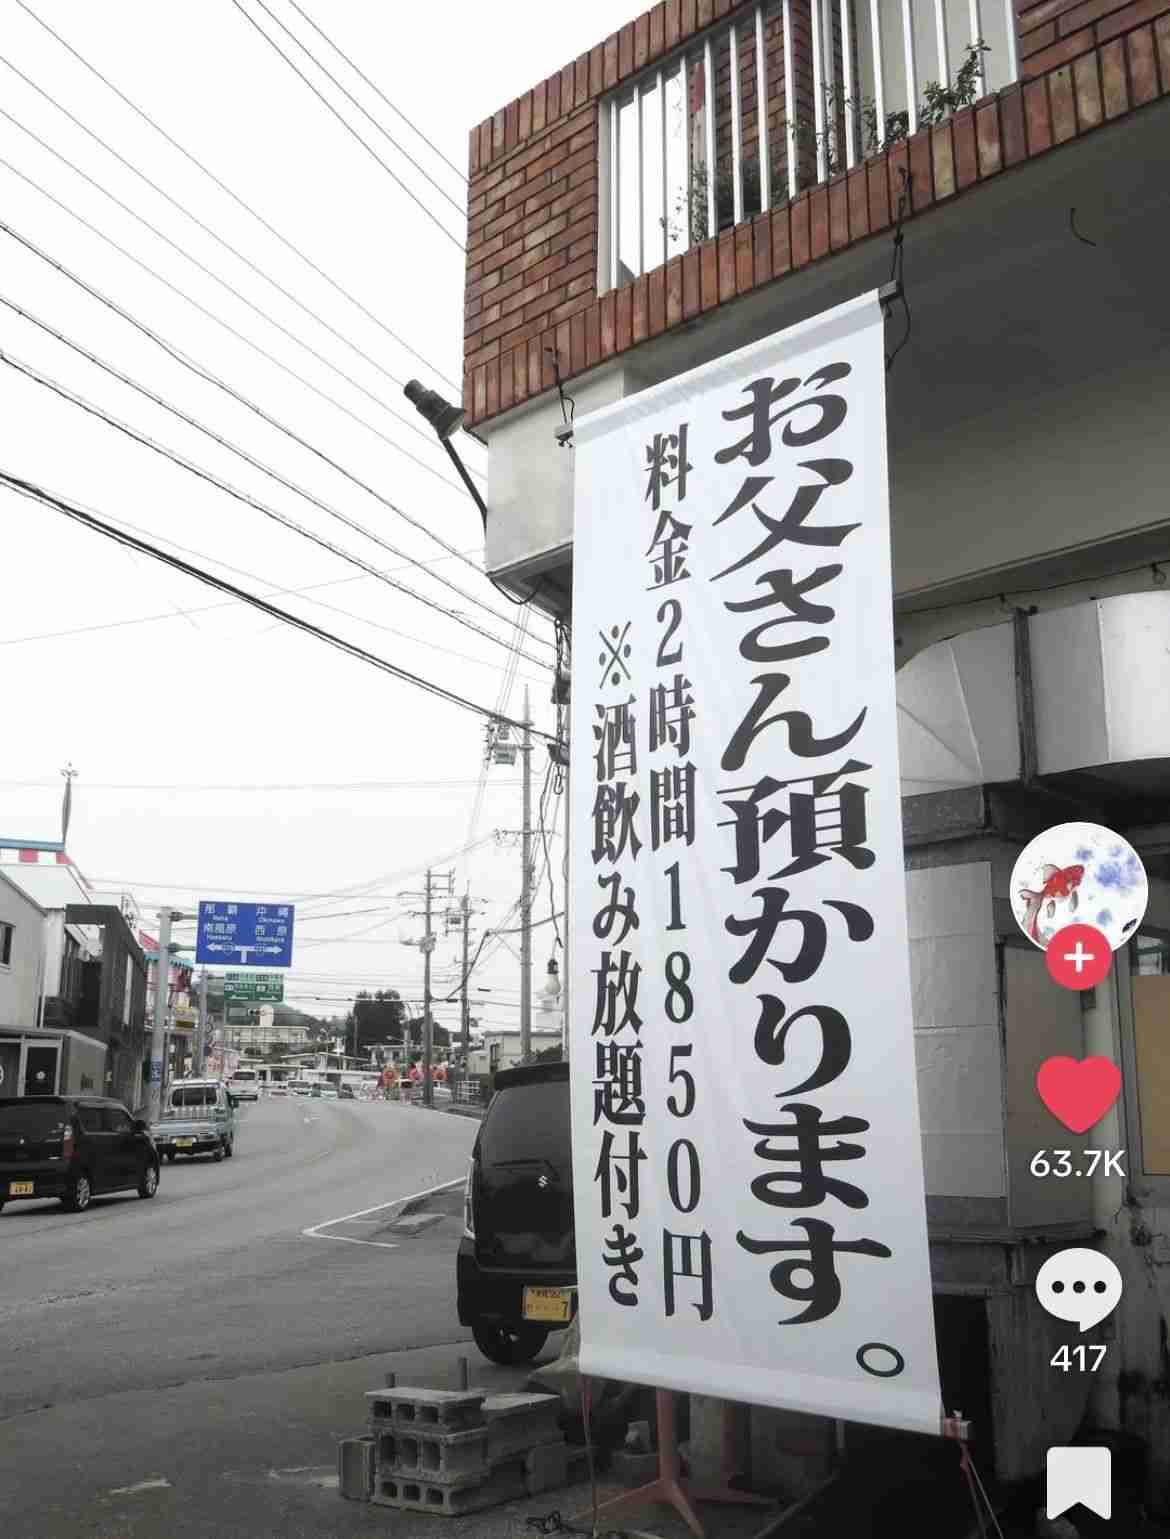 お父さん預かります。
料金2時間1850円
※酒飲み放題付き
那覇 沖縄
Naha Okinawa
南風原 西原
Haebaru Nishihara
7
63.7K
417